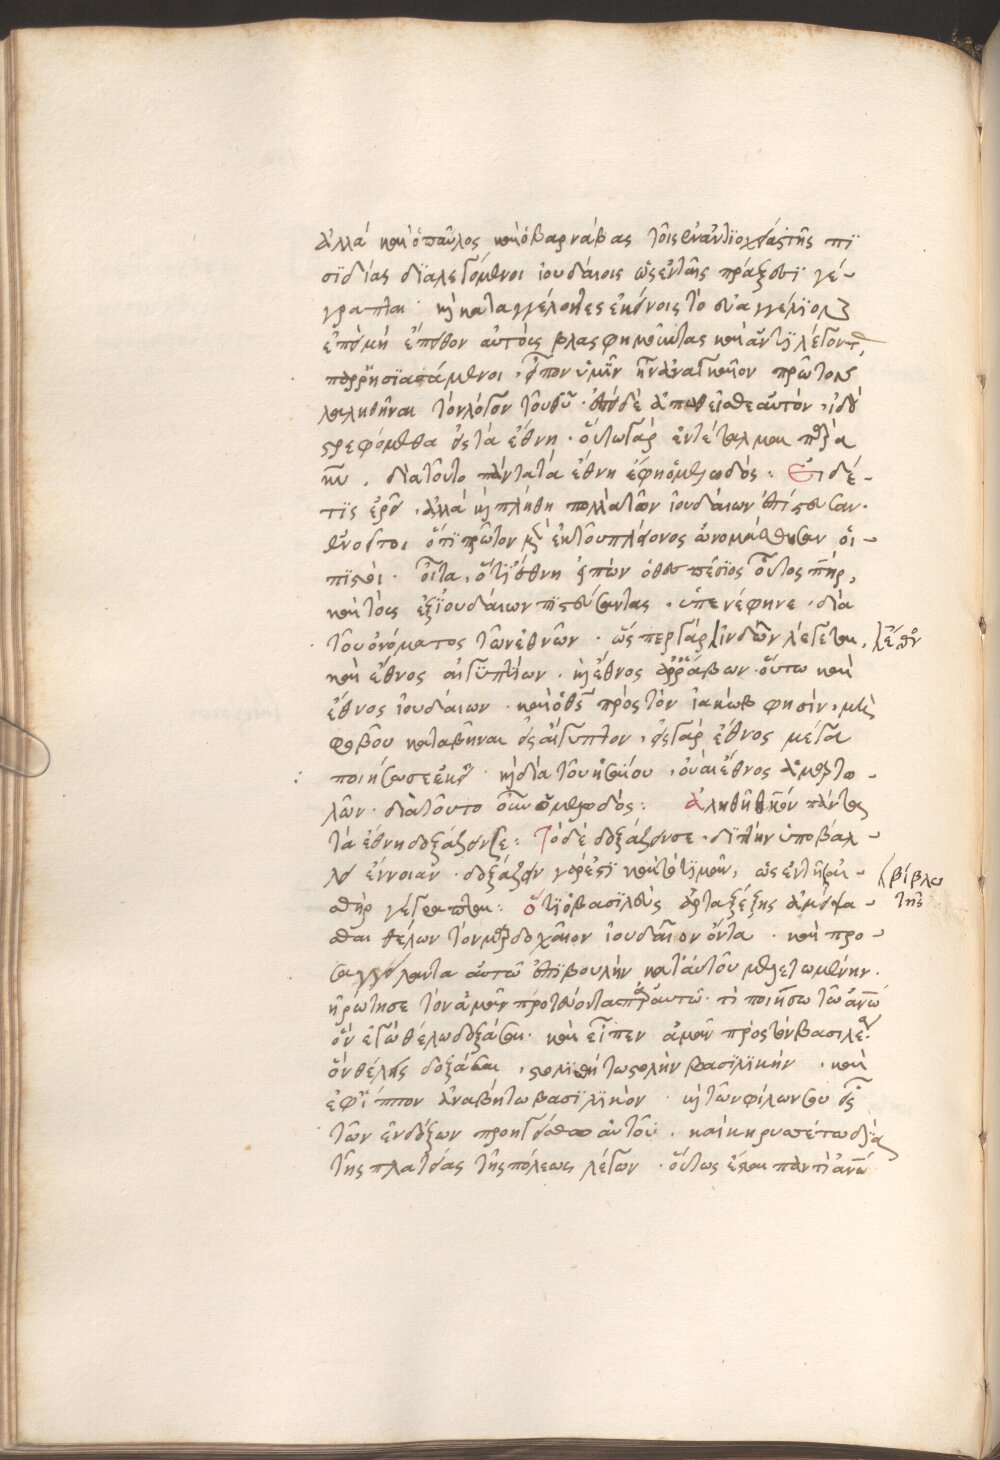 ἀλλὰ καὶ ὁ παῦλος καὶ ὁ βαρνάβας τοῖς ἐν ἀντϊοχεία τῆς πϊ
σϊδίας δϊαλεγόμενοι ἰουδαίοις ὡς ἐν ταῖς πράξεσϊ γέ-
γραπται · κὴ καταγγέλοντες ἐκείνοις τὸ εὐαγγέλϊον
ἐπεὶ μὴ ἔπειθον αὐτοὺς βλασφημοῦντας καὶ ἀντϊλέγοντ
παρρησϊασάμενοι, εἶπον ὑμῖν ἦν ἀναγκαῖον πρῶτον
λαληθῆναι τὸν λόγον τοῦ θυ · ἐπεὶ δὲ ἀπωθεῖσθε αὐτὸν, ἰδοὺ
στρεφόμεθα εἰς τὰ ἔθνη · οὕτω γὰρ ἐντέταλμαι
διὰ τοῦτο πάντα τὰ ἔθνη ἔφη ὁ μελωδός: Εἰ δέ-
τις ἐρεῖ, ἀλλὰ κὴ πλήθη πολλὰ τῶν ἰουδαίων ἐπίστευσαν ·
ὅτϊ πρῶτον ἐκ τοῦ πλείονος ὠνομάσθησαν οἱ-
πϊστοὶ · εἶτα, ὅτϊ ἔθνη εἰπὼν ὁ θεσπέσϊος οὗτος πηρ,
καὶ τοὺς ἐξ ἰουδαίων πϊστεύσαντας, ὑπενέφηνε · διὰ
τοῦ ὀνόματος τῶν ἐθνῶν · ὥσπερ γὰρ ἰνδῶν λέγεται, ἔθν
καὶ ἔθνος αἰγυπτίων · κὴ ἔθνος ἀρράβων · οὕτω καὶ
ἔθνος ἰουδαίων · καὶ ὁ θς πρὸς τὸν ἰακὼβ φησὶν, μὴ
φοβοῦ καταβῆναι εἰς αἴγυπτον, εἰς γὰρ ἔθνος μέγα
ποιήσω σε ἐκεῖ · κὴ διὰ τοῦ ἡσαΐου, οὐαὶ ἔθνος ἁμαρτω-
λὸν · διὰ τοῦτο ὁ μελωδός: ἀληθινὸν πάντα
τὰ ἔθνη δοξάζουσϊ: Τὸ δὲ δοξάζουσι · διττὴν ὑποβάλ-
λει ἔννοιαν · δοξάζειν γάρ ἐστϊ καὶ τὸ τϊμᾶν, ὡς ἐν τῆ βίβλω
ἐσθὴρ γέγραπται: ὅτϊ ὁ βασϊλεὺς ἀρταξέξης ἀμείψα- τῆς
σθαι θέλων τὸν μαρδοχαῖον ἰουδαῖον ὄντα · καὶ προ-
σαγγείλαντα αὐτῶ ἐπϊβουλὴν κατ' αὐτοῦ μελετωμένην ·
ἠρώτησε τὸν ἀμὰν αὐτῶ · τὶ ποιήσω τῶ ἀνω
ὃν ἐγὼ θέλω δοξάσαι · καὶ εἶπεν ἀμὰν πρὸς τὸν βασιλέα
ὃν θέλεις δοξάσαι, στολϊσθήτω στολὴν βασϊλϊκὴν, καὶ
ἐφ' ἵππον ἀναβήτω βασϊλϊκὸν · κὴ τῶν φίλων σου εἷς
τῶν ἐνδόξων προηγείσθω αὐτοῦ, καὶ κηρυσσέτω διὰ
τῆς πλατείας τῆς πόλεως λέγων · οὕτως ἔσται παντὶ ἀνω